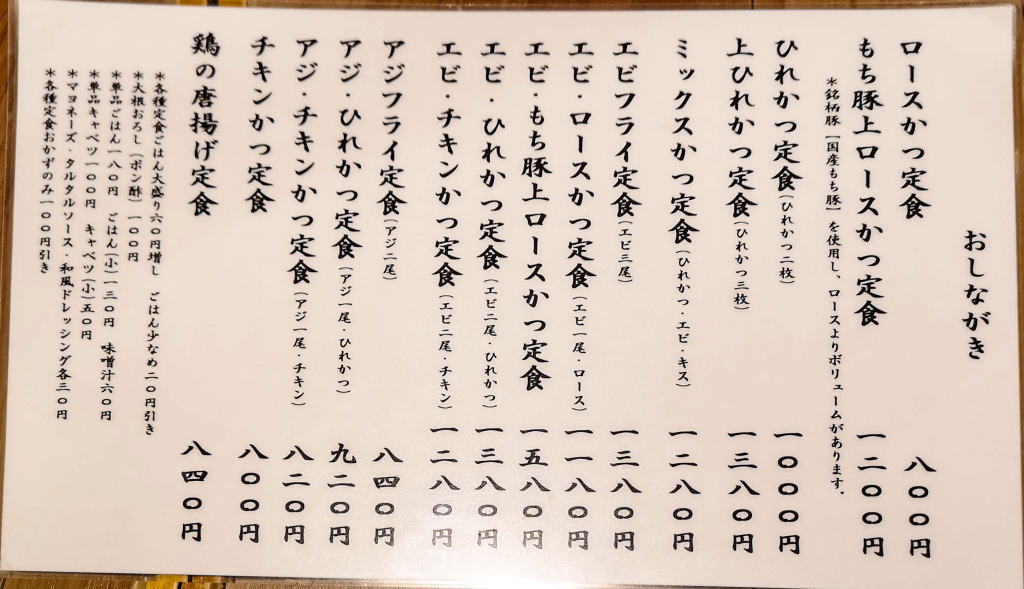 おしながき
ロースかつ定食 八〇〇円
もち豚上ロースかつ定食 一二〇〇円
＊銘柄豚「国産もち豚」を使用し、ロースよりボリュームがあります。
ひれかつ定食（ひれかつ二枚） 一〇〇〇円
上ひれかつ定食（ひれかつ三枚） 一三八〇円
ミックスかつ定食（ひれかつ・エビ・キス） 一二八〇円
エビフライ定食（エビ三尾） 一三八〇円
エビ・ロースかつ定食（エビ一尾・ロース） 一一八〇円
エビ・もち豚上ロースかつ定食 一五八〇円
エビ・ひれかつ定食（エビ二尾・ひれかつ） 一三八〇円
エビ・チキンかつ定食（エビ二尾・チキン） 一二八〇円
アジフライ定食（アジ二尾） 八四〇円
アジ・ひれかつ定食（アジ一尾・ひれかつ） 九二〇円
アジ・チキンかつ定食（アジ一尾・チキン） 八二〇円
チキンかつ定食 八〇〇円
鶏の唐揚げ定食 八四〇円
＊各種定食ごはん大盛り六〇円増し　ごはん少なめ二〇円引き
＊大根おろし（ポン酢）一〇〇円
＊単品ごはん一八〇円　ごはん（小）一三〇円　味噌汁六〇円
＊単品キャベツ一〇〇円　キャベツ（小）五〇円
＊マヨネーズ・タルタルソース・和風ドレッシング各三〇円
＊各種定食おかずのみ一〇〇円引き